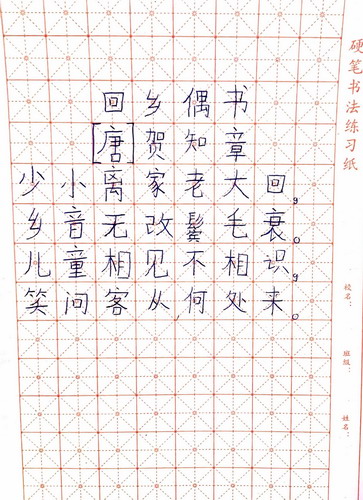 回乡偶书
[唐]贺知章
少小离家老大回,
乡音无改鬓毛衰。
儿童相见不相识,
笑问客从何处来。
硬笔书法练习纸
校名：
班级：
姓名：